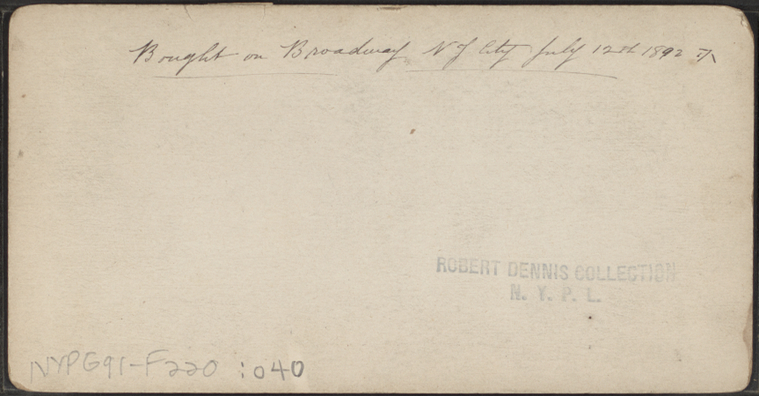 Bought on Broadway N Y City July 12th 1892
ROBERT DENNIS COLLECTION
N. Y. P. L.
NYPG91-F220 :040